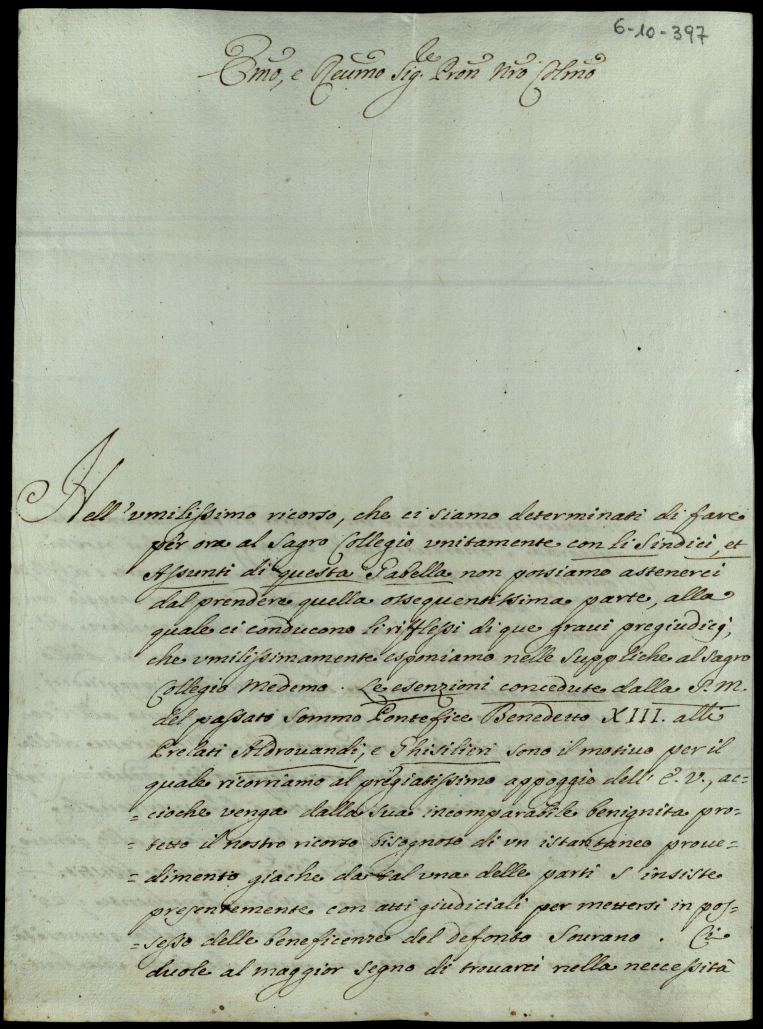 6-10-397
Emo, e Reumo Sig.re Pron Nro Colmo
Nell'vmilissimo ricorso, che ci siamo determinati di fare
per ora al Sagro Collegio vnitamente con li Sindici, et
Assunti di questa Gabella non possiamo astenerci
dal prendere quella ossequentissima parte, alla
quale ci conducono li riflessi di que gravi pregiudicj,
che vmilissimamente esponiamo nelle Suppliche al Sagro
Collegio Medemo. Le esenzioni concedute dalla S. M.
del passato Sommo Pontefice Benedetto XIII. alli
Prelati Aldrouandi, e Ghisilieri sono il motiuo per il
quale ricorriamo al pregiatissimo appoggio dell' E. V., ac=
=cioche venga dalla Sua incomparabile benignita pro=
=tetto il nostro ricorso bisognoso di vn istantaneo proue=
=dimento giache da tal vna delle parti s' insiste
presentemente con atti giudiciali per mettersi in pos=
=sesso delle beneficenze del defonto Sourano. Ci
duole al maggior segno di trouarci nella neccessità